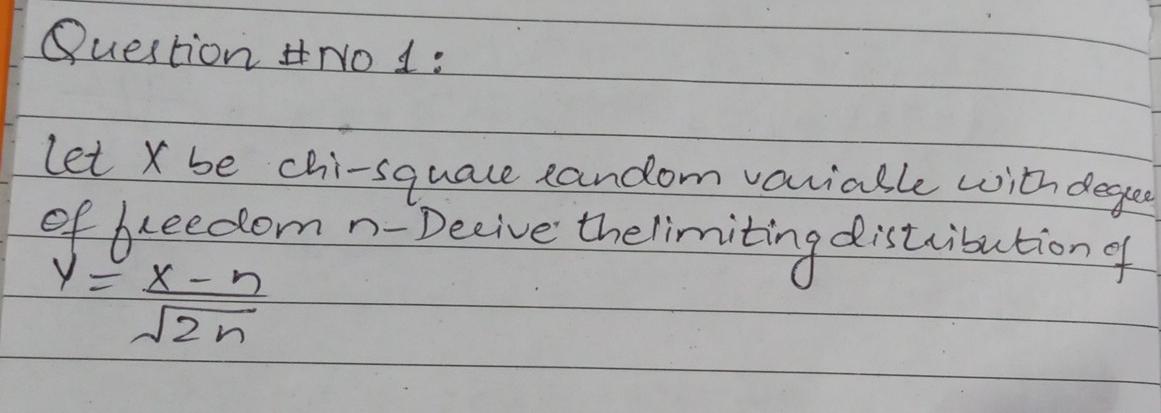 Question #NO 1:
let X be chi-square random variable with degree
of freedom n- Derive the limiting distribution of
Y = X - n
√2n